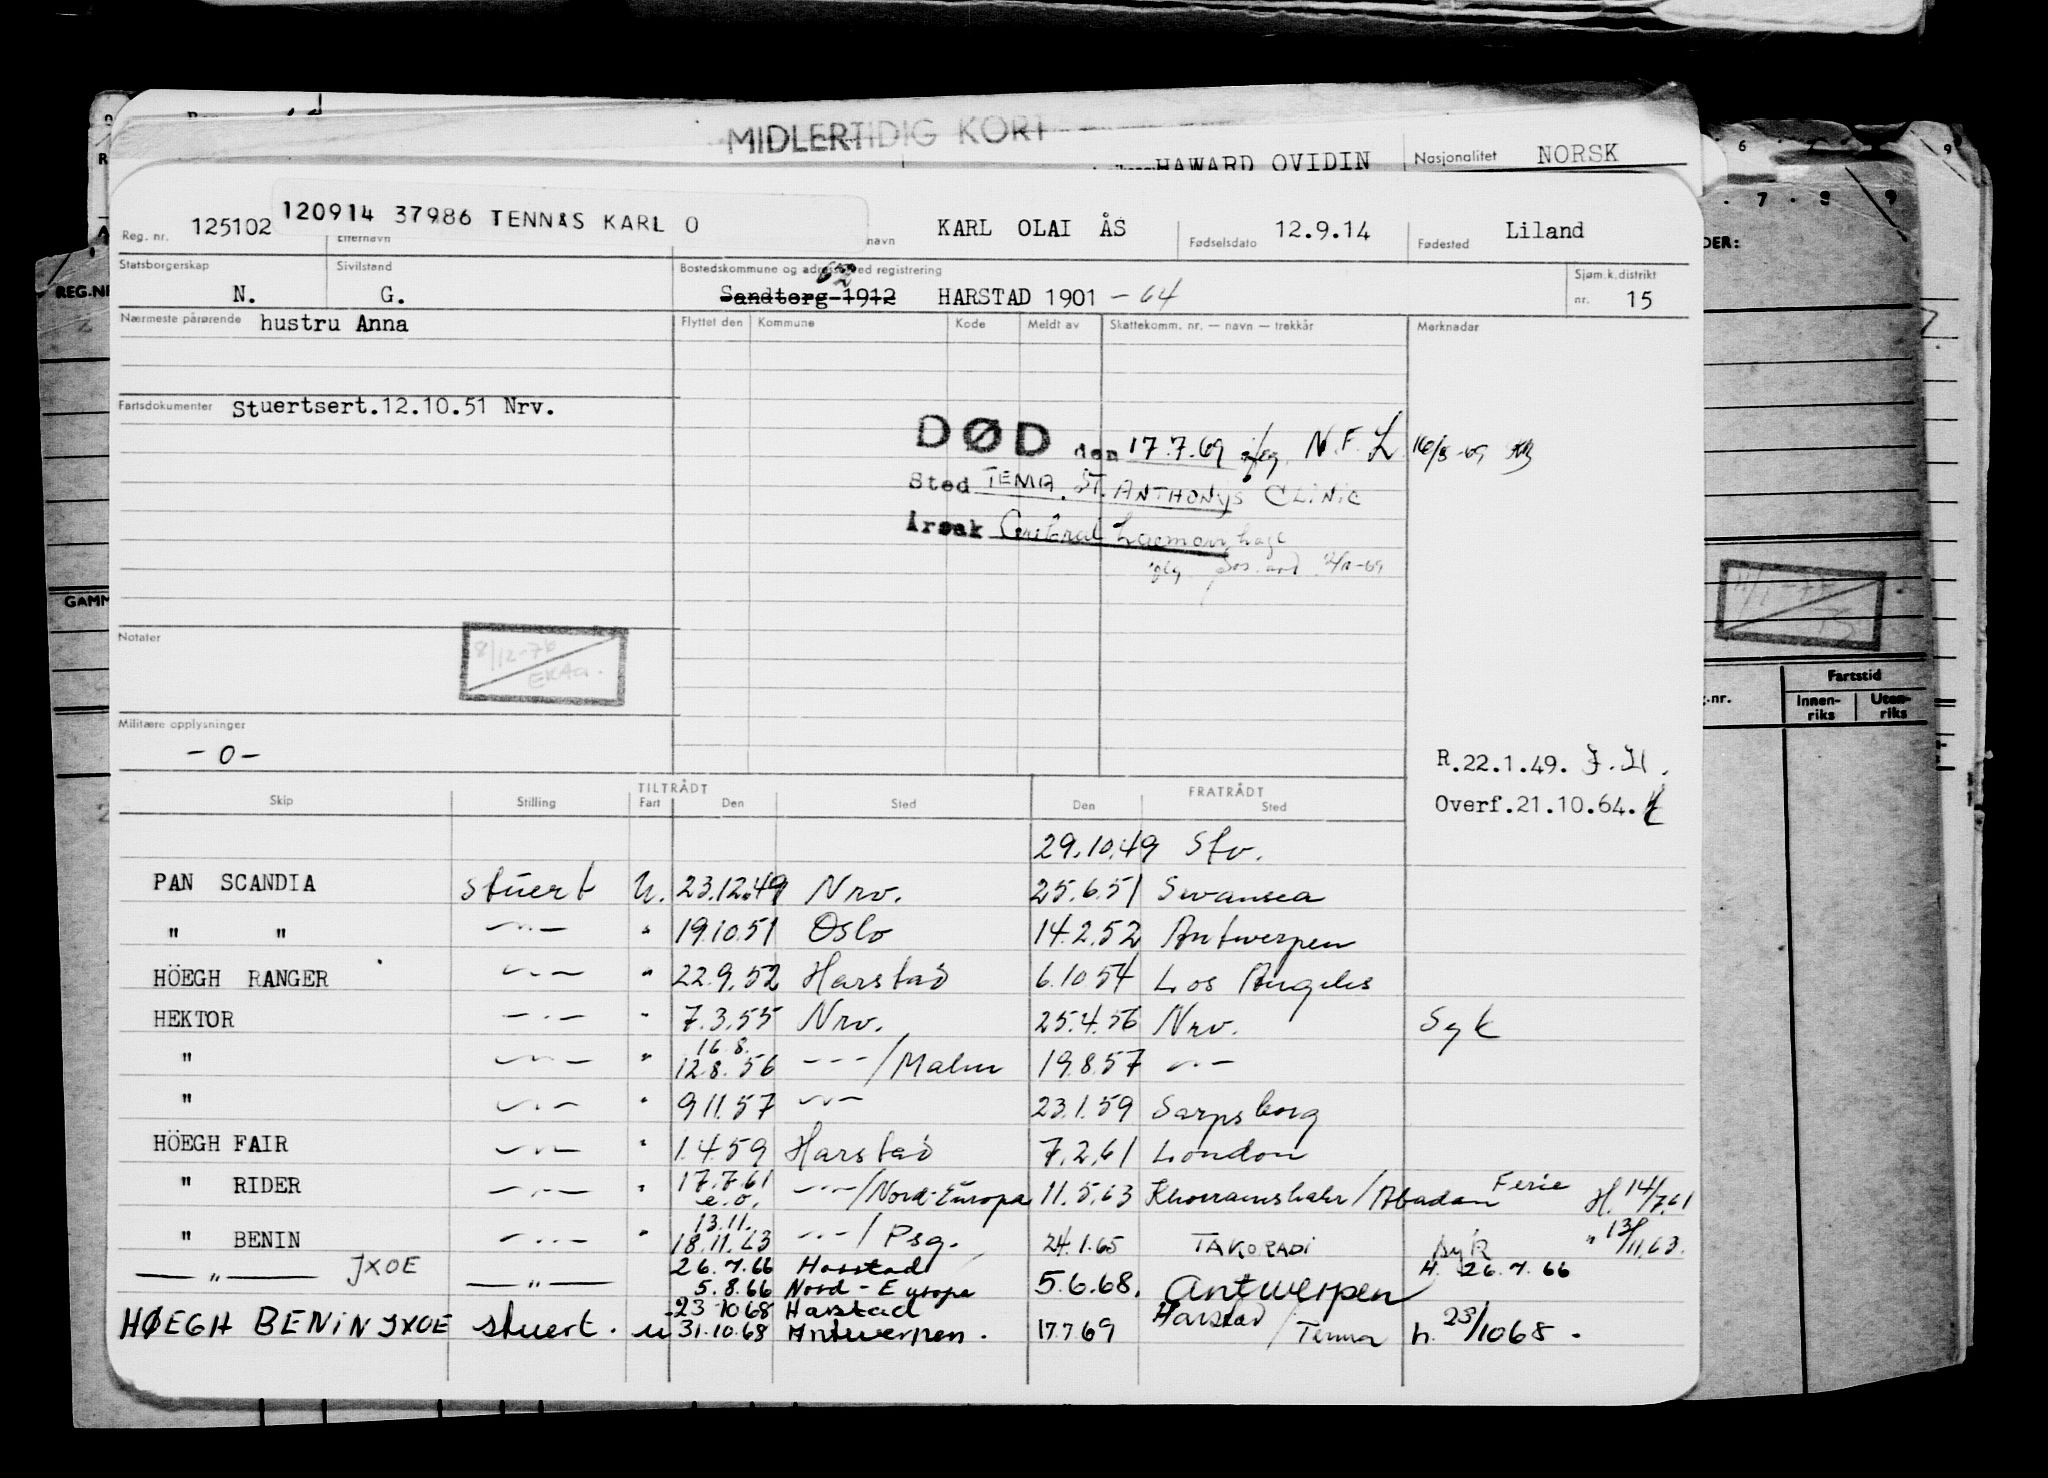 MIDLERTIDIG KORT
HAWARD OVIDIN Nasjonalitet NORSK
Reg. nr. 125102 120914 37986 TENNÅS KARL O Etternavn navn KARL OLAI ÅS Fødselsdato 12.9.14 Fødested Liland
Statsborgerskap N. Sivilstand G. Bostedskommune og adresse ved registrering Sandtorg 1912 62 HARSTAD 1901 - 64 Sjøm.k.distrikt nr. 15
Nærmeste pårørende hustru Anna Flyttet den Kommune Kode Meldt av Skattekomm. nr. — navn — trekkår Merknader
Fartsdokumenter Stuertsert.12.10.51 Nrv.
DØD den 17.7.69 iføg. N.F.L. 16/8-69
Sted TEMA. ST. ANTHONYS CLINIC
Årsak Cerebral haemorrhage
Notater
8/12-76
EKAa.
Militære opplysninger
- 0 -
R.22.1.49. J.H.
Overf.21.10.64.
TILTRÅDT FRATRÅDT
Skip Stilling Fart Den Sted Den Sted
29.10.49 Sfv.
PAN SCANDIA Stuert U. 23.12.49 Nrv. 25.6.51 Swansea
" " —"— " 19.10.51 Oslo 14.2.52 Antwerpen
HÖEGH RANGER —"— " 22.9.52 Harstad 6.10.54 Los Angeles
HEKTOR —"— " 7.3.55 Nrv. 25.4.56 Nrv. Syk
" —"— " 16.8. 12.8.56 —"—/Malm 19.8.57 —"—
" —"— " 9.11.57 —"— 23.1.59 Sarpsborg
HÖEGH FAIR —"— " 1.4.59 Harstad 7.2.61 London
" RIDER —"— " 17.7.61 e.o. —"—/Nord-Europa 11.5.63 Khorramshahr/Abadan Ferie H. 14/7.61
" BENIN —"— " 13.11. 18.11.63 —"—/Psg. 24.1.65 TAKORADI Syk " 13/11.63.
—"— JXOE —"— 26.7.66 Harstad H. 26.7.66
5.8.66 Nord-Europa 5.6.68. Antwerpen
23.10.68 Harstad Harstad
HØEGH BENIN JXOE stuert. u 31.10.68 Antwerpen. 17.7.69 / Tema h. 23/10 68.
REG.NR
GAMM
6 9
7 8 9
DER:
nr.
Fartstid
Innen-riks Uten-riks